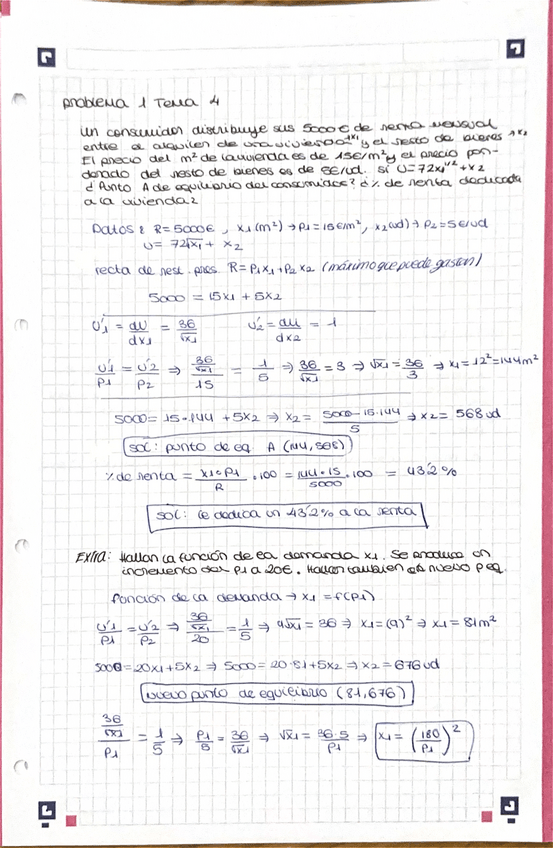 Problema 1 Tema 4
Un consumidor distribuye sus 5000€ de renta mensual
entre el alquiler de una vivienda x1 y el resto de bienes x2
El precio del m² de la vivienda es de 15€/m² y el precio pon-
derado del resto de bienes es de 5€/ud. si U=72x1^1/2 + x2
¿Punto A de equilibrio del consumidor? ¿% de renta dedicada
a la vivienda?
Datos: R=5000€, x1 (m²) → P1=15€/m², x2 (ud) → P2=5€/ud
U= 72√x1 + x2
recta de rest. pres. R=P1x1+P2x2 (máximo que puede gastar)
5000 = 15x1 + 5x2
U'1 = dU/dx1 = 36/√x1 U'2 = dU/dx2 = 1
U'1/P1 = U'2/P2 ⇒ (36/√x1)/15 = 1/5 ⇒ 36/√x1 = 3 ⇒ √x1 = 36/3 → x1 = 12² = 144 m²
5000 = 15·144 + 5x2 ⇒ x2 = (5000-15·144)/5 ⇒ x2 = 568 ud
Sol: punto de eq. A (144, 568)
% de renta = (x1·P1)/R · 100 = (144·15)/5000 · 100 = 43'2%
Sol: le dedica un 43'2% a la renta
Extra: Hallar la función de la demanda x1. Se produce un
incremento del P1 a 20€. Hallar también el nuevo p eq.
Función de la demanda → x1 = f(P1)
U'1/P1 = U'2/P2 ⇒ (36/√x1)/20 = 1/5 ⇒ 4√x1 = 36 ⇒ x1 = (9)² ⇒ x1 = 81 m²
5000 = 20x1 + 5x2 ⇒ 5000 = 20·81 + 5x2 ⇒ x2 = 676 ud
Nuevo punto de equilibrio (81, 676)
(36/√x1)/P1 = 1/5 ⇒ P1/5 = 36/√x1 ⇒ √x1 = 36·5/P1 ⇒ x1 = (180/P1)²